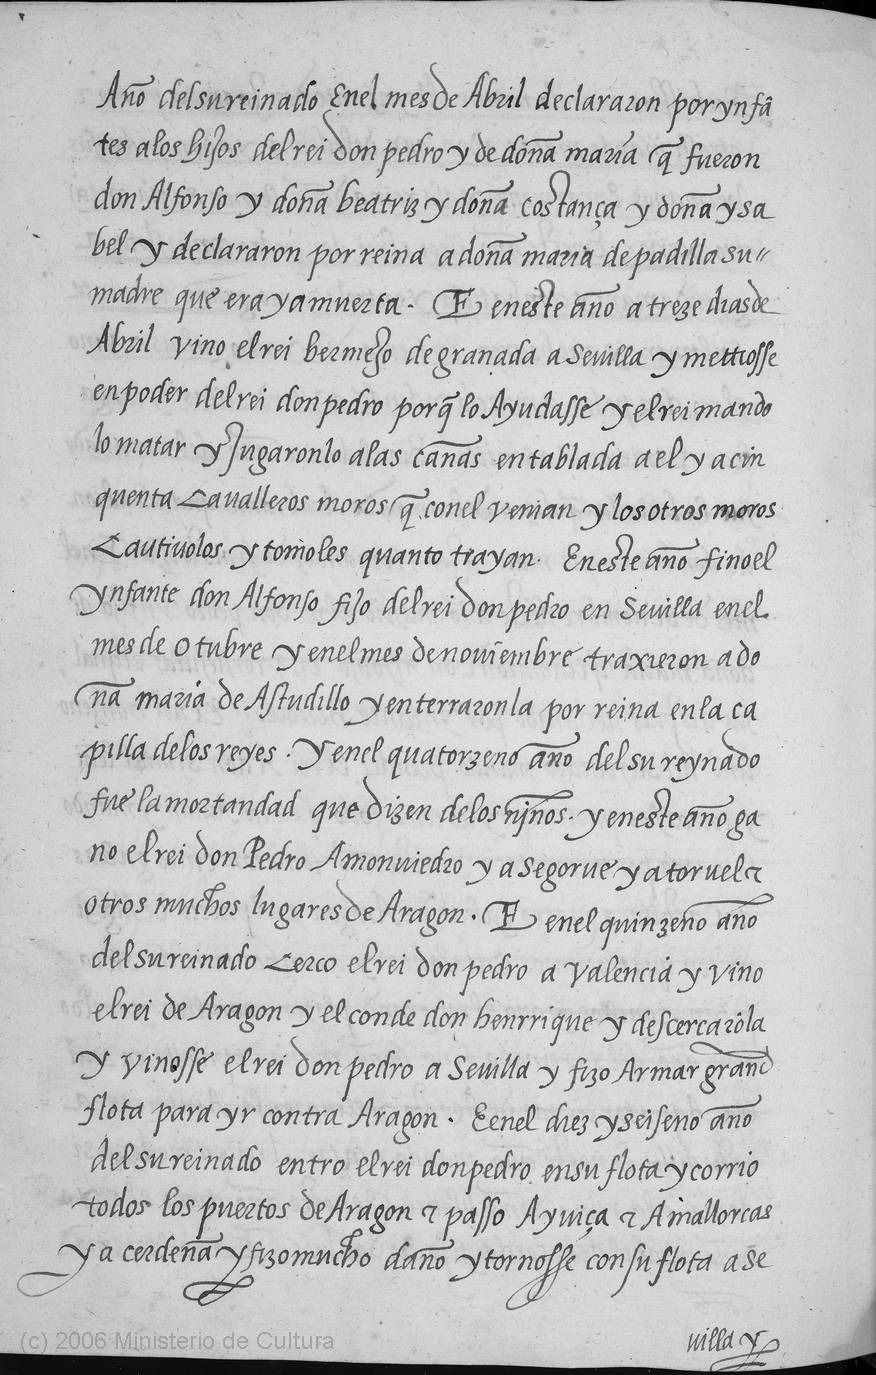 Año delsu reinado Enel mes de Abril declararon por ynfã
tes alos hijos del rei don pedro y de doña maria q̃ fueron
don Alfonso y doña beatriz y doña costança y doña ysa
bel y declararon por reina a doña maria de padilla su〃
madre que era ya muerta. E eneste año a treze dias de
Abril vino el rei bermejo de granada a Sevilla y mettiosse
en poder del rei don pedro porq̃ lo Ayudasse y el rei mando
lo matar y Jugaronlo alas cañas entablada a el y a cin
quenta Cavalleros moros q̃ con el venian y los otros moros
Cautivolos y tomoles quanto trayan. Eneste año fino el
ynfante don Alfonso fijo del rei don pedro en Sevilla enel
mes de Otubre y enel mes de noviembre traxieron a do
ña maria de Astudillo y enterraronla por reina en la ca
pilla delos reyes. Y enel quatorzeno año del su reynado
fue la mortandad que dizen delos niños. y eneste año ga
no el rei don Pedro Amonviedro y a Segorve y a toruel ⁊
otros muchos lugares de Aragon. E enel quinzeno año
del su reinado Cerco el rei don pedro a valencia y vino
el rei de Aragon y el conde don henrrique y descercarola
y vinosse el rei don pedro a Sevilla y fizo Armar grand
flota para yr contra Aragon. Eenel diez y seiseno año
del su reinado entro el rei don pedro en su flota y corrio
todos los puertos de Aragon ⁊ passo Ayviça ⁊ Amallorcas
y a cerdeña y fizo mucho daño y tornosse con su flota a Se
villa y
(c) 2006 Ministerio de Cultura